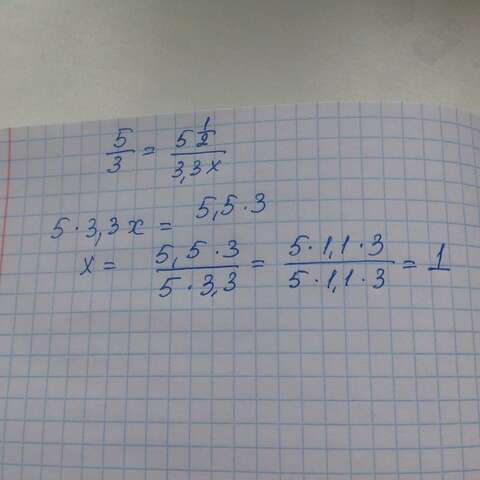 5/3 = 5 1/2 / 3,3x
5 · 3,3x = 5,5 · 3
x = 5,5 · 3 / 5 · 3,3 = 5 · 1,1 · 3 / 5 · 1,1 · 3 = 1